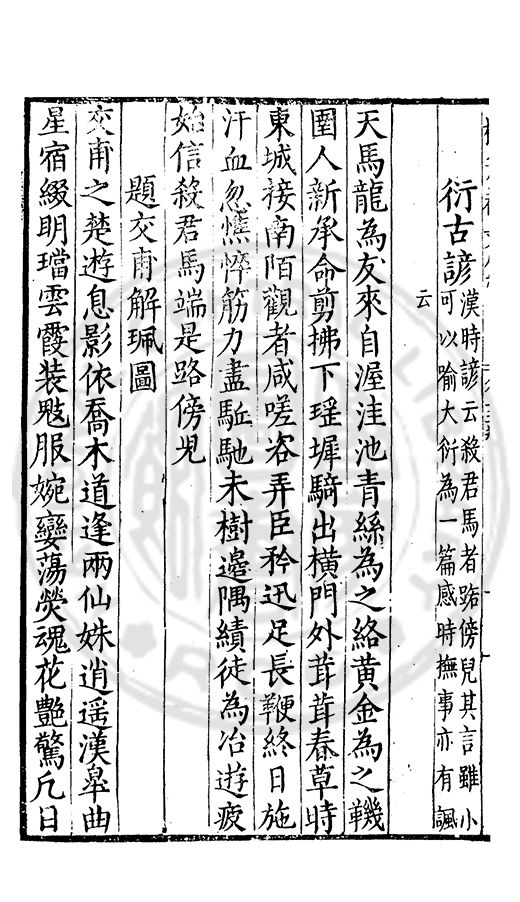 衍古諺
漢時諺云殺君馬者路傍兒其言雖小
可以喻大衍為一篇感時撫事亦有諷
云
天馬龍為友來自渥洼池青絲為之絡黃金為之鞿
圉人新承命剪拂下瑶墀騎出橫門外茸茸春草時
東城接南陌觀者咸嗟咨弄臣矜迅足長鞭終日施
汗血忽憔悴筋力盡駈馳未樹邊隅績徒為冶遊疲
始信殺君馬端是路傍兒
題交甫解珮圖
交甫之楚遊息影依喬木道逢兩仙姝逍遥漢皋曲
星宿綴明璫雲霞装𩲃服婉孌蕩熒魂花艶驚凡日